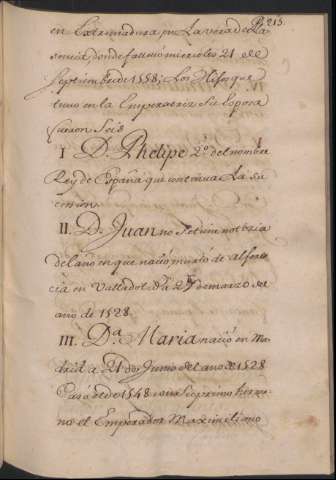 P. 213.
en Extremadura en La vera de La
sencia, donde fallecio miercoles 21 de
Septiembre de 1558; Los Hijos que
tuvo en la Emperatriz Su Esposa
fueron Seis
I D. Phelipe 2º del nombre
Rey de España que continua La su
cesion.
II. D. Juan no se tiene noticia
del año en que nacio murio de alfere
cia en Valladolid a 29 de marzo del
año de 1528
III. Dª Maria nacio en Ma
drid a 21 de Junio del año de 1528
Casó el de 1548 con su primo herma
no el Emperador Maximiliano